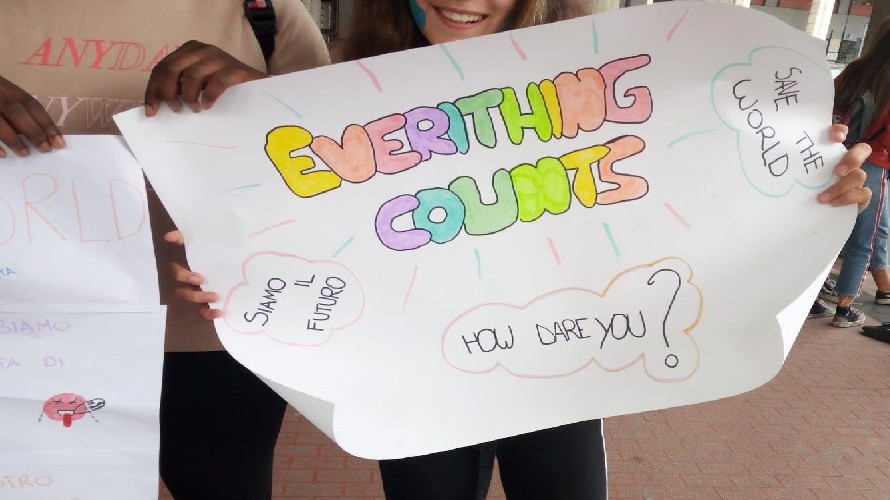 ANYDA
NYW
ORLD
BIAMO
TA DI
STRO
EVERITHING
COUNTS
SAVE THE
WORLD
SIAMO
IL
FUTURO
HOW DARE YOU?